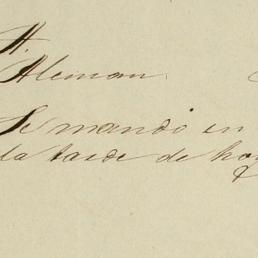 A.
Aleman.
Se mando en
la tarde de hoy